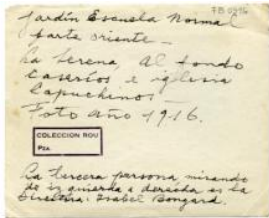 FB 0916
Jardín Escuela Normal
parte oriente -
La Serena, Al fondo
Caseríos e iglesia
Capuchinos -
Foto año 1916.
COLECCION ROU
Pza.
La tercera persona mirando
de izquierda a derecha es la
Directora: Isabel Bongard.